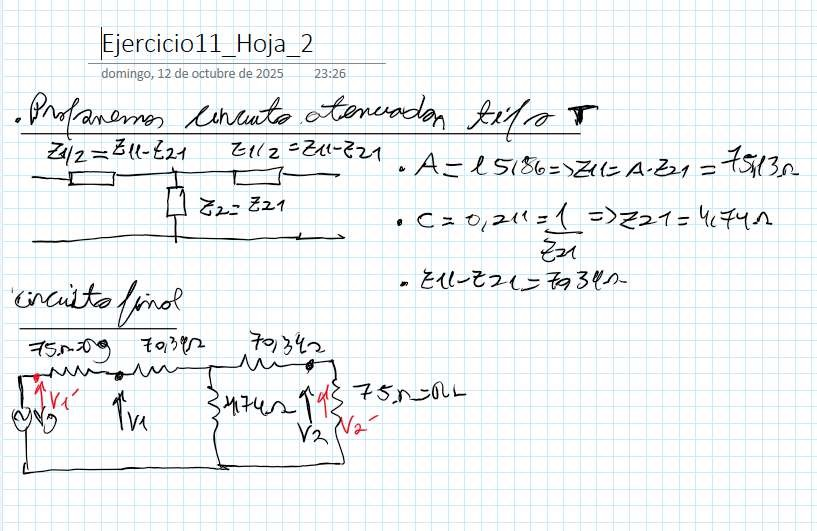 Ejercicio11_Hoja_2
domingo, 12 de octubre de 2025 23:26
• Proponemos circuito atenuador tipo T
Z1/2 = Z11-Z21 Z1/2 = Z11-Z21
Z2 = Z21
• A = 15,86 => Z11 = A·Z21 = 75,13Ω
• C = 0,211 = 1/Z21 => Z21 = 4,74Ω
• Z11-Z21 = 70,34Ω
circuito final
75Ω=Rg 70,34Ω 70,34Ω
Vg V1' V1 4,74Ω V2 V2' 75Ω=RL